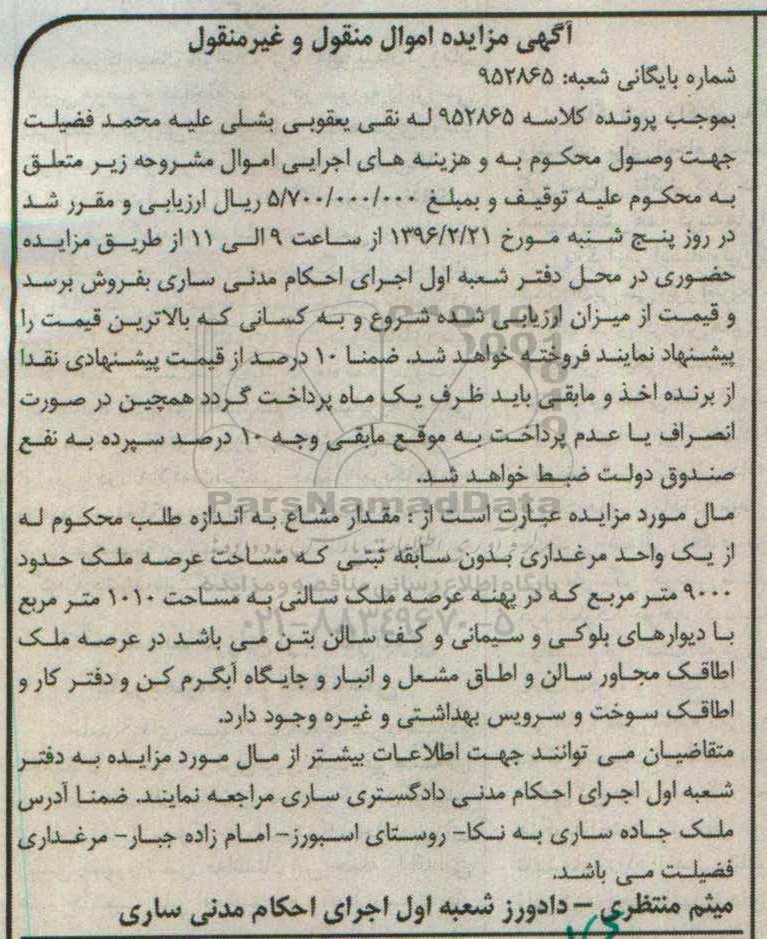 آگهی مزایده اموال منقول و غیرمنقول
شماره بایگانی شعبه: ۹۵۲۸۶۵
بموجب پرونده کلاسه ۹۵۲۸۶۵ له نقی یعقوبی بشلی علیه محمد فضیلت
جهت وصول محکوم به و هزینه های اجرایی اموال مشروحه زیر متعلق
به محکوم علیه توقیف و بمبلغ ۵/۷۰۰/۰۰۰/۰۰۰ ریال ارزیابی و مقرر شد
در روز پنج شنبه مورخ ۱۳۹۶/۲/۲۱ از ساعت ۹ الی ۱۱ از طریق مزایده
حضوری در محل دفتر شعبه اول اجرای احکام مدنی ساری بفروش برسد
و قیمت از میزان ارزیابی شده شروع و به کسانی که بالاترین قیمت را
پیشنهاد نمایند فروخته خواهد شد. ضمنا ۱۰ درصد از قیمت پیشنهادی نقدا
از برنده اخذ و مابقی باید ظرف یک ماه پرداخت گردد همچین در صورت
انصراف یا عدم پرداخت به موقع مابقی وجه ۱۰ درصد سپرده به نفع
صندوق دولت ضبط خواهد شد.
ParsNamadData
مال مورد مزایده عبارت است از : مقدار مشاع به اندازه طلب محکوم له
از یک واحد مرغداری بدون سابقه ثبتی که مساحت عرصه ملک حدود
پایگاه اطلاع رسانی مناقصه و مزایده
۹۰۰۰ متر مربع که در پهنه عرصه ملک سالنی به مساحت ۱۰۱۰ متر مربع
۰۲۱-۸۸۳۴۹۶۷۰-۵
با دیوارهای بلوکی و سیمانی و کف سالن بتن می باشد در عرصه ملک
اطاقک مجاور سالن و اطاق مشعل و انبار و جایگاه آبگرم کن و دفتر کار و
اطاقک سوخت و سرویس بهداشتی و غیره وجود دارد.
متقاضیان می توانند جهت اطلاعات بیشتر از مال مورد مزایده به دفتر
شعبه اول اجرای احکام مدنی دادگستری ساری مراجعه نمایند. ضمنا آدرس
ملک جاده ساری به نکا- روستای اسبورز- امام زاده جبار- مرغداری
فضیلت می باشد.
میثم منتظری - دادورز شعبه اول اجرای احکام مدنی ساری